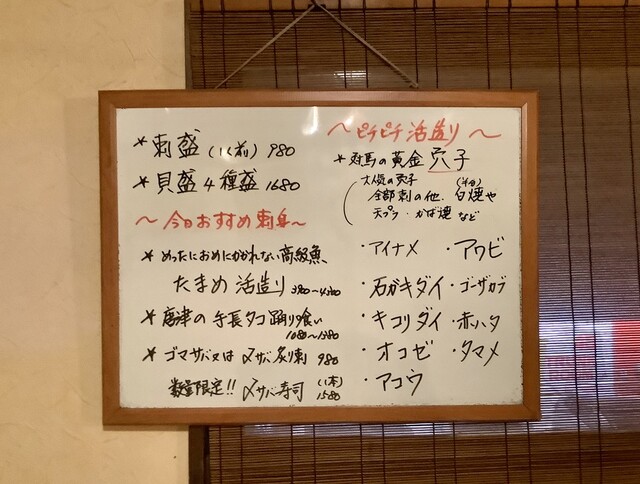 * 刺盛(1人前) 980
* 貝盛4種盛 1680
〜今日おすすめ刺身〜
* めったにおめにかかれない高級魚
たまめ活造り
* 唐津の手長タコ踊り喰い
1080〜1380
* ゴマサバ又は〆サバ炙り刺 980
数量限定!! 〆サバ寿司 (1本) 1580
〜ピチピチ活造り〜
* 対馬の黄金穴子
大人気の穴子
全部刺の他、白焼や
天プラ・かば焼など
・アイナメ ・アワビ
・石ガキダイ ・ゴーザカブ
・キコリダイ ・赤ハタ
・オコゼ ・タマメ
・アコウ